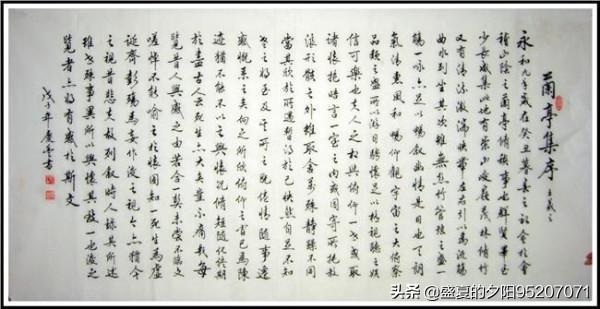 蘭亭集序 王羲之
永和九年歲在癸丑暮春之初會於會
稽山陰之蘭亭脩稧事也群賢畢至
少長咸集此地有崇山峻嶺茂林脩竹
又有清流激湍映帶左右引以為流觴
曲水列坐其次雖無絲竹管弦之盛一
觴一詠亦足以暢敘幽情是日也天朗
氣清惠風和暢仰觀宇宙之大俯察
品類之盛所以游目騁懷足以極視聽之娛
信可樂也夫人之相與俯仰一世或取
諸懷抱晤言一室之內或因寄所託放
浪形骸之外雖取舍萬殊靜躁不同
當其欣於所遇暫得於己快然自足不知
老之將至及其所之既倦情隨事遷
感慨系之矣向之所欣俯仰之間已為陳
迹猶不能不以之興懷況脩短隨化終期
於盡古人云死生亦大矣豈不痛哉每
覽昔人興感之由若合一契未嘗不臨文
嗟悼不能喻之於懷固知一死生為虛
誕齊彭殤為妄作後之視今亦猶今
之視昔悲夫故列敘時人錄其所述
雖世殊事異所以興懷其致一也後之
覽者亦將有感於斯文
戊子年書
头条 @盛夏的夕阳95207071